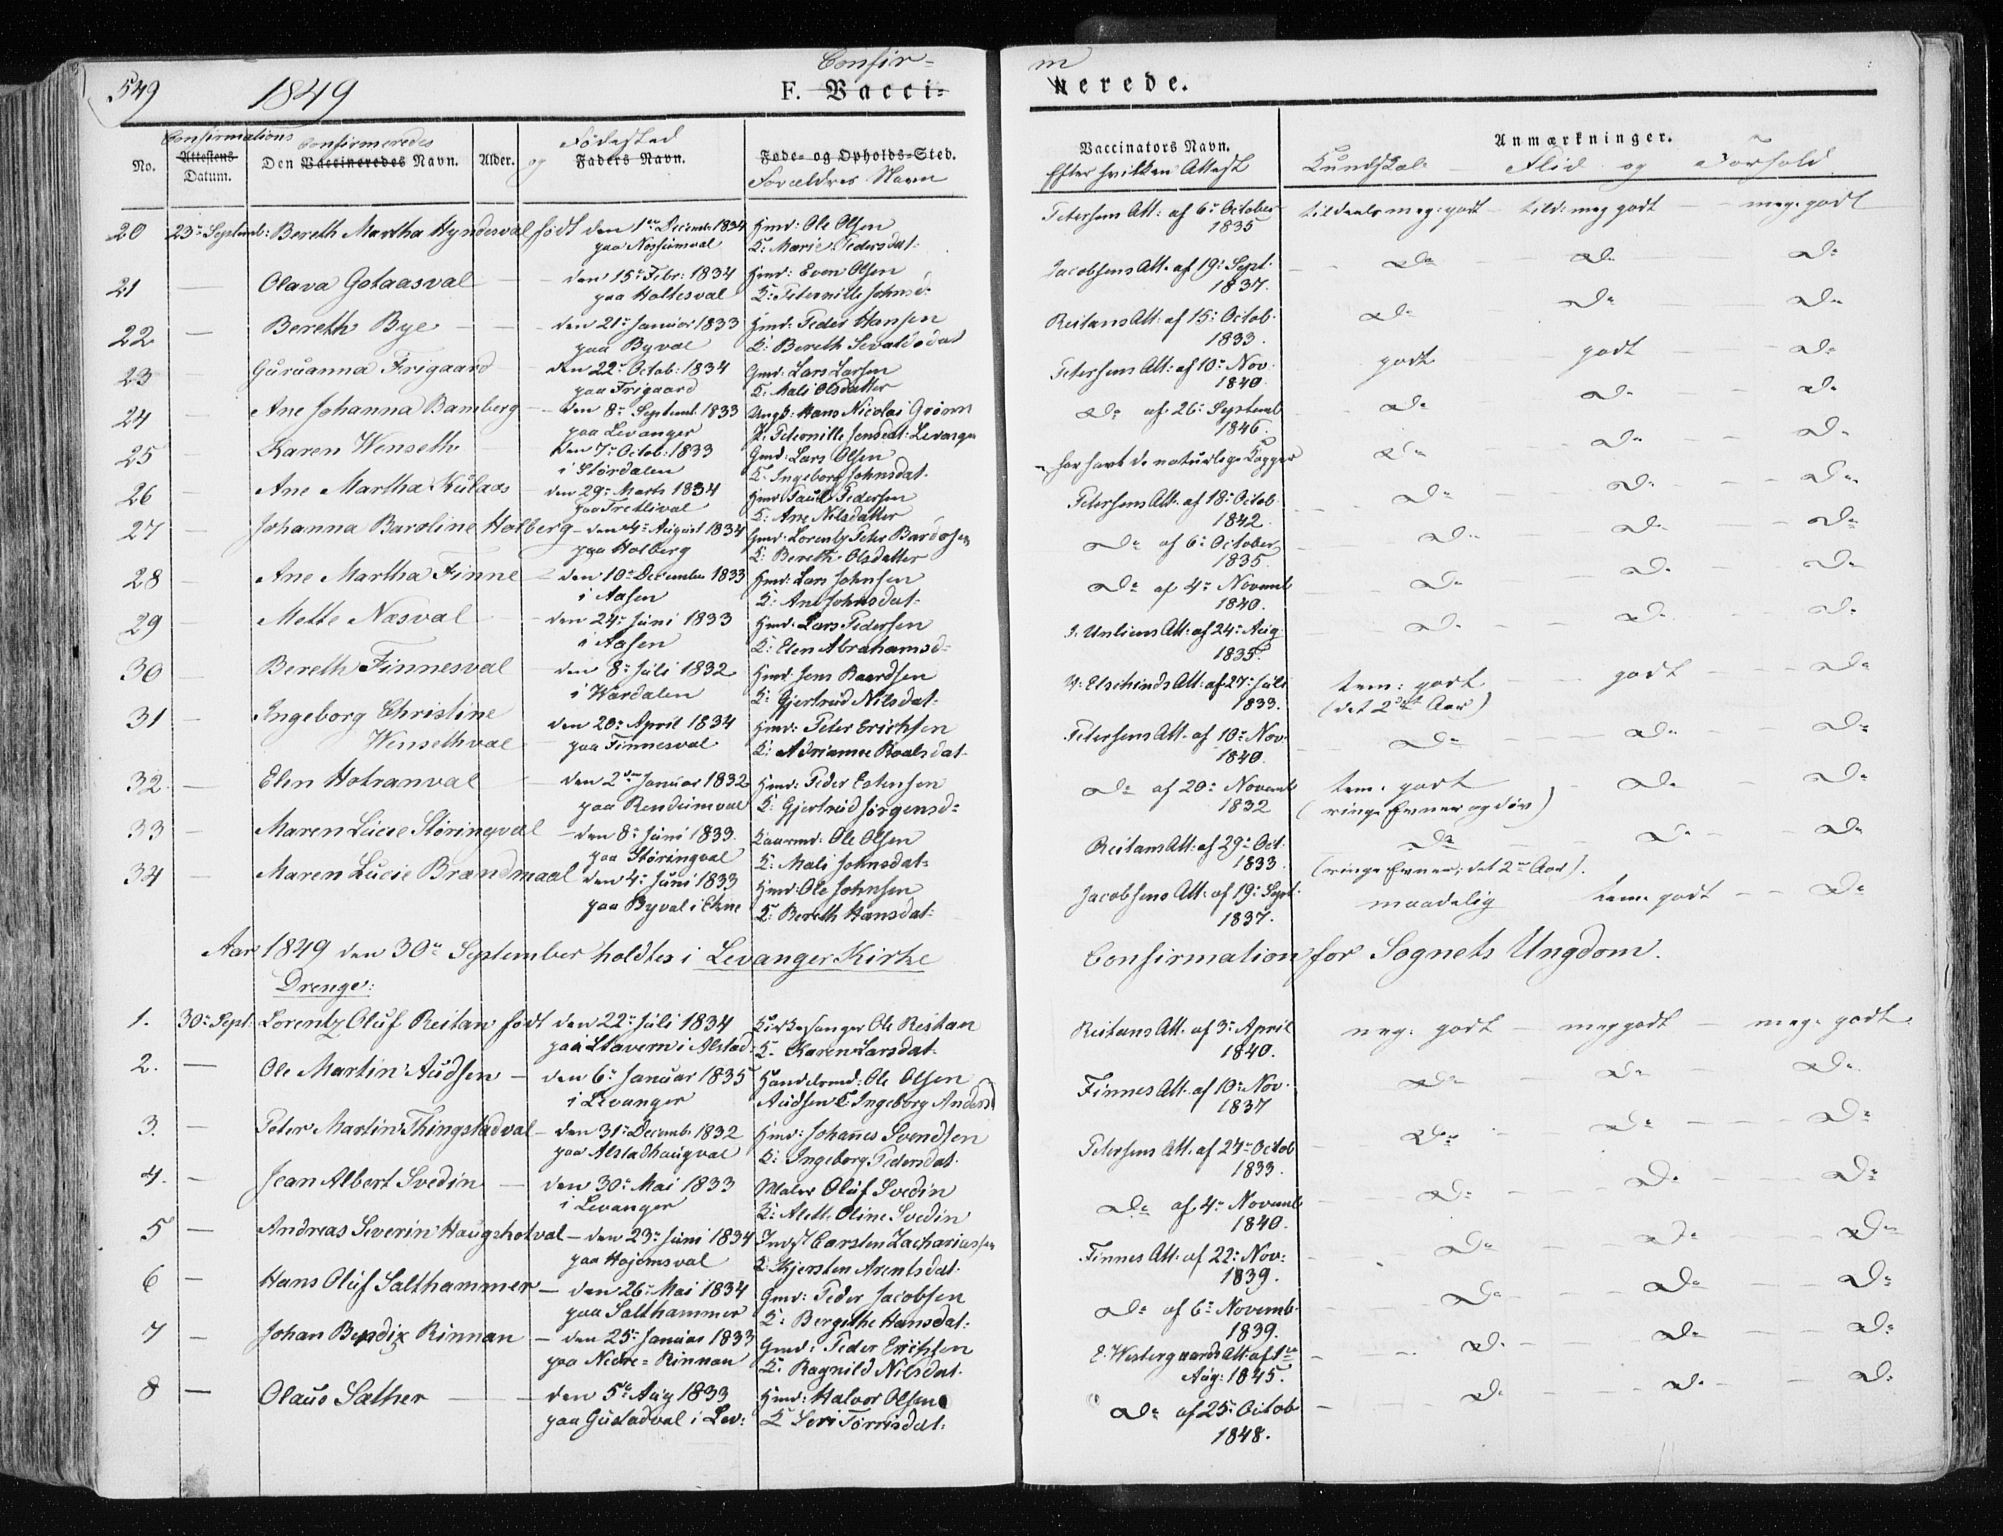 549 1849 Confir-
F. Vacci= m nerede.
No. Confirmations Attestens Datum. Den Confirmeredes Vaccineredes Navn. Alder. og Fødested Faders Navn. Føde- og Opholds-Sted. Forældres Navn
Vaccinators Navn. Efter hvilken Attest Anmærkninger. Kundskab Flid og Forhold
20 23de Septemb: Bereth Martha Hyndesval født den 1ste Decemb: 1834 Hmd: Ole Olsen Petersens Att: af 6te October tildeels meg: godt tild: meg godt meg: godt
paa Nossumval K: Marie Pedersdat: 1835
21 — Olava Gotaasval den 15de Febr: 1834 Hmd: Even Olsen Jacobsens Att. af 19de Sept. Do Do Do
paa Holtesval K: Peternille Johnsd: 1837.
22 — Bereth Bye den 21de Januar 1833 Hmd: Peder Hansen Reitans Att: af 15de Octob. Do Do Do
paa Byval K: Bereth Sevaldsdat 1833.
23 — Guruanna Frigaard den 22de Octob: 1834 Gmd: Lars Larsen Petersens Att: af 10de Nov. godt godt Do
paa Frigaard K. Mali Olsdatter 1840.
24 — Ane Johanna Bamberg den 8de Septemb. 1833 Ungk: Hans Nicolai Grønn Do af 26de Septemb Do Do Do
paa Levanger P. Peternille Jensdat: Levanger 1846.
25 — Karen Wenseth den 7de Octob: 1833 Gmd: Lars Olsen har havt de naturlige Kopper Do Do Do
i Størdalen K. Ingeborg Johnsdat.
26 — Ane Martha Kulaas den 29de Marts 1834 Hmd Paul Pedersen Petersens Att. af 18de Octob. Do Do Do
paa Tretlival K: Ane Nilsdatter 1842.
27 — Johanna Baroline Holberg den 4de August 1834 Gmd: Lorentz Peter Bardosen Do af 6te October Do Do Do
paa Holberg K: Bereth Olsdatter 1835.
28 — Ane Martha Finne den 10de December 1833 Hmd: Lars Johnsen Do af 4de Novemb Do Do Do
i Aasen K: Ane Johnsdat: 1840.
29 — Mette Næsval den 24de Juni 1833 Hmd: Lars Pedersen Att: af 24de Aug Do Do Do
i Aasen K: Elen Abrahamsd: 1835.
30 — Bereth Finnesval den 8de Juli 1832 Hmd: Jens Baardsen Att: af 27de Juli tem: godt godt Do
i Værdalen K: Gjertrud Nilsdat. 1833. (det 2det Aar)
31 — Ingeborg Christine den 20de April 1834 Hmd: Peter Erichsen Petersens Att. af 10de Nov. Do Do Do
Wensethval paa Finnesval K: Adrianne Roalsdat. 1840.
32 — Elen Hotranval den 2den Januar 1832 Hmd: Peder Estensen Do af 20de Novemb tem: godt Do Do
paa Rendumval K: Gjertrud Jørgensd: 1832 (ringe Evner og døv)
33 — Maren Lucie Støringval den 8de Juni 1833. Kaarmd: Ole Olsen Reitans Att: af 29de Oct. Do Do Do
paa Støringval K: Mali Johnsdat: 1833. (ringe Evner; det 2det Aar).
34 — Maren Lucie Brandmaal den 4de Juni 1833 Hmd: Ole Johnsen Jacobsens Att: af 19de Sept. maadelig tem: godt Do
paa Byval i Ekne K: Bereth Hansdat: 1837.
Aar 1849 den 30te September holdtes i Levanger Kirke Confirmation for Sognets Ungdom.
Drenge:
1. 30te Sept. Lorentz Oluf Reitan født den 22de Juli 1834 Kirkesanger Ole Reitan Reitans Att. af 3de April meg: godt meg godt meg: godt
paa Stavern i Alstad: K. Karen Larsdat. 1840.
2. — Ole Martin Audsen den 6te Januar 1835 Handelsmd: Ole Olsen Finnes Att. af 10de Nov. Do Do Do
i Levanger Audsen K. Ingeborg Andersd 1837
3. — Peter Martin Thingstadval den 31te Decemb. 1832 Hmd: Johannes Svendsen Petersens Att. af 24de Octob Do Do Do
paa Alstadhaugval K: Ingeborg Pedersdat. 1833.
4. — Jean Albert Svedin den 30te Mai 1833 Maler Oluf Svedin Do af 4de Novemb Do Do Do
i Levanger K: Aleth. Oline Svedin 1840.
5 — Andreas Severin Haugskotval den 23de Juni 1834 Indst Carsten Zachariassen Finnes Att: af 22de Nov: Do Do Do
paa Hojemsval K: Kjersten Arentsdat. 1839.
6 — Hans Oluf Salthammer den 26de Mai 1834 Gmd: Peder Jacobsen Do af 6te Novemb. Do Do Do
paa Salthammer K: Bergithe Hansdat: 1839.
7 — Johan Bendix Rinnan den 25de Januar 1833 Gmd: Peder Erichsen E. Westergaards Att: af 1ste Do Do Do
paa Nedre=Rinnan K: Ragnild Nilsdat. Aug: 1845.
8 — Olaus Sæther den 5te Aug 1833 Hmd: Halvor Olsen Do af 25de Octob Do Do Do
paa Gustadval i Lev: K Seri Torrisdat: 1848.